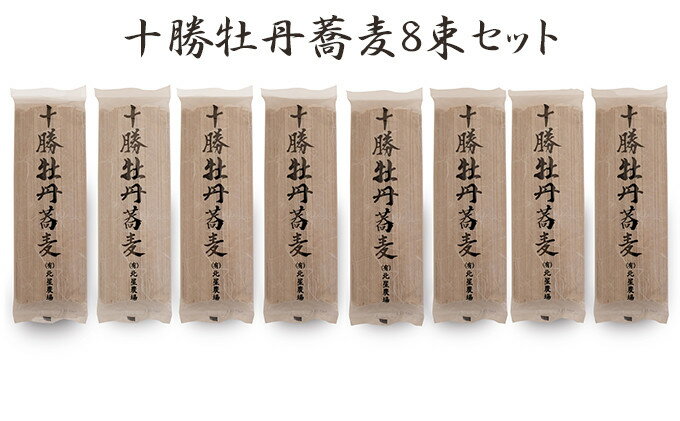 十勝牡丹蕎麦8束セット
十勝牡丹蕎麦
(有)北星農場
十勝牡丹蕎麦
(有)北星農場
十勝牡丹蕎麦
(有)北星農場
十勝牡丹蕎麦
(有)北星農場
十勝牡丹蕎麦
(有)北星農場
十勝牡丹蕎麦
(有)北星農場
十勝牡丹蕎麦
(有)北星農場
十勝牡丹蕎麦
(有)北星農場